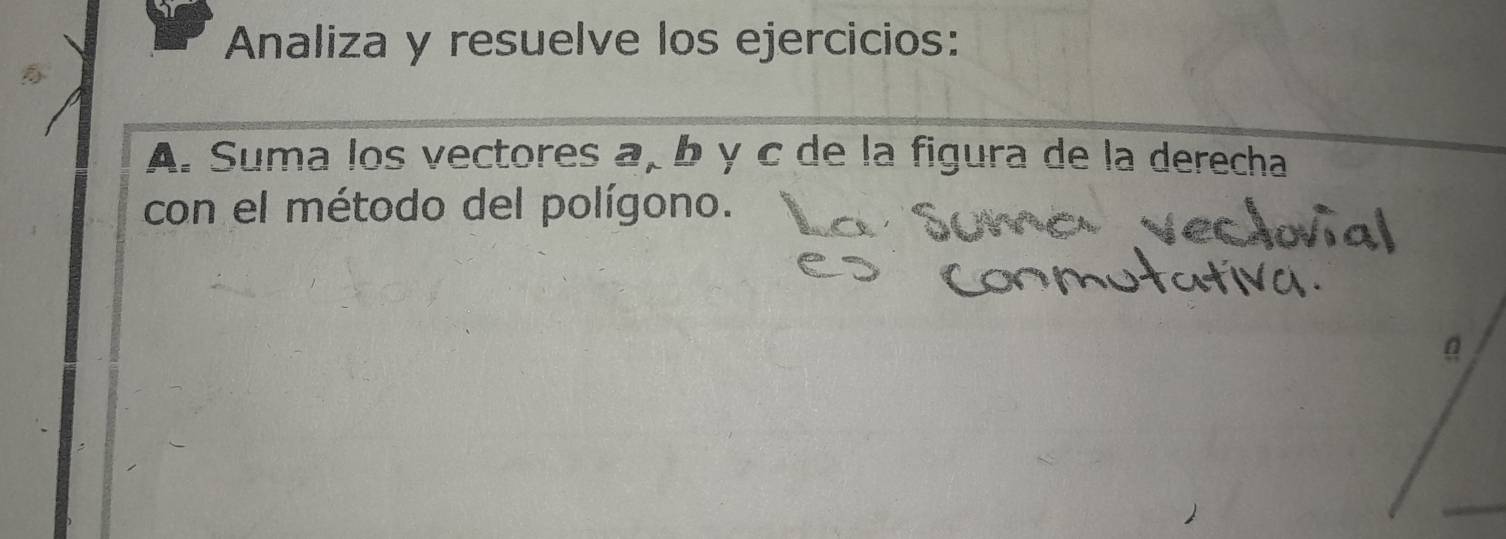 Analiza y resuelve los ejercicios:
A. Suma los vectores a, b y c de la figura de la derecha
con el método del polígono.
La suma vectorial
es conmutativa.